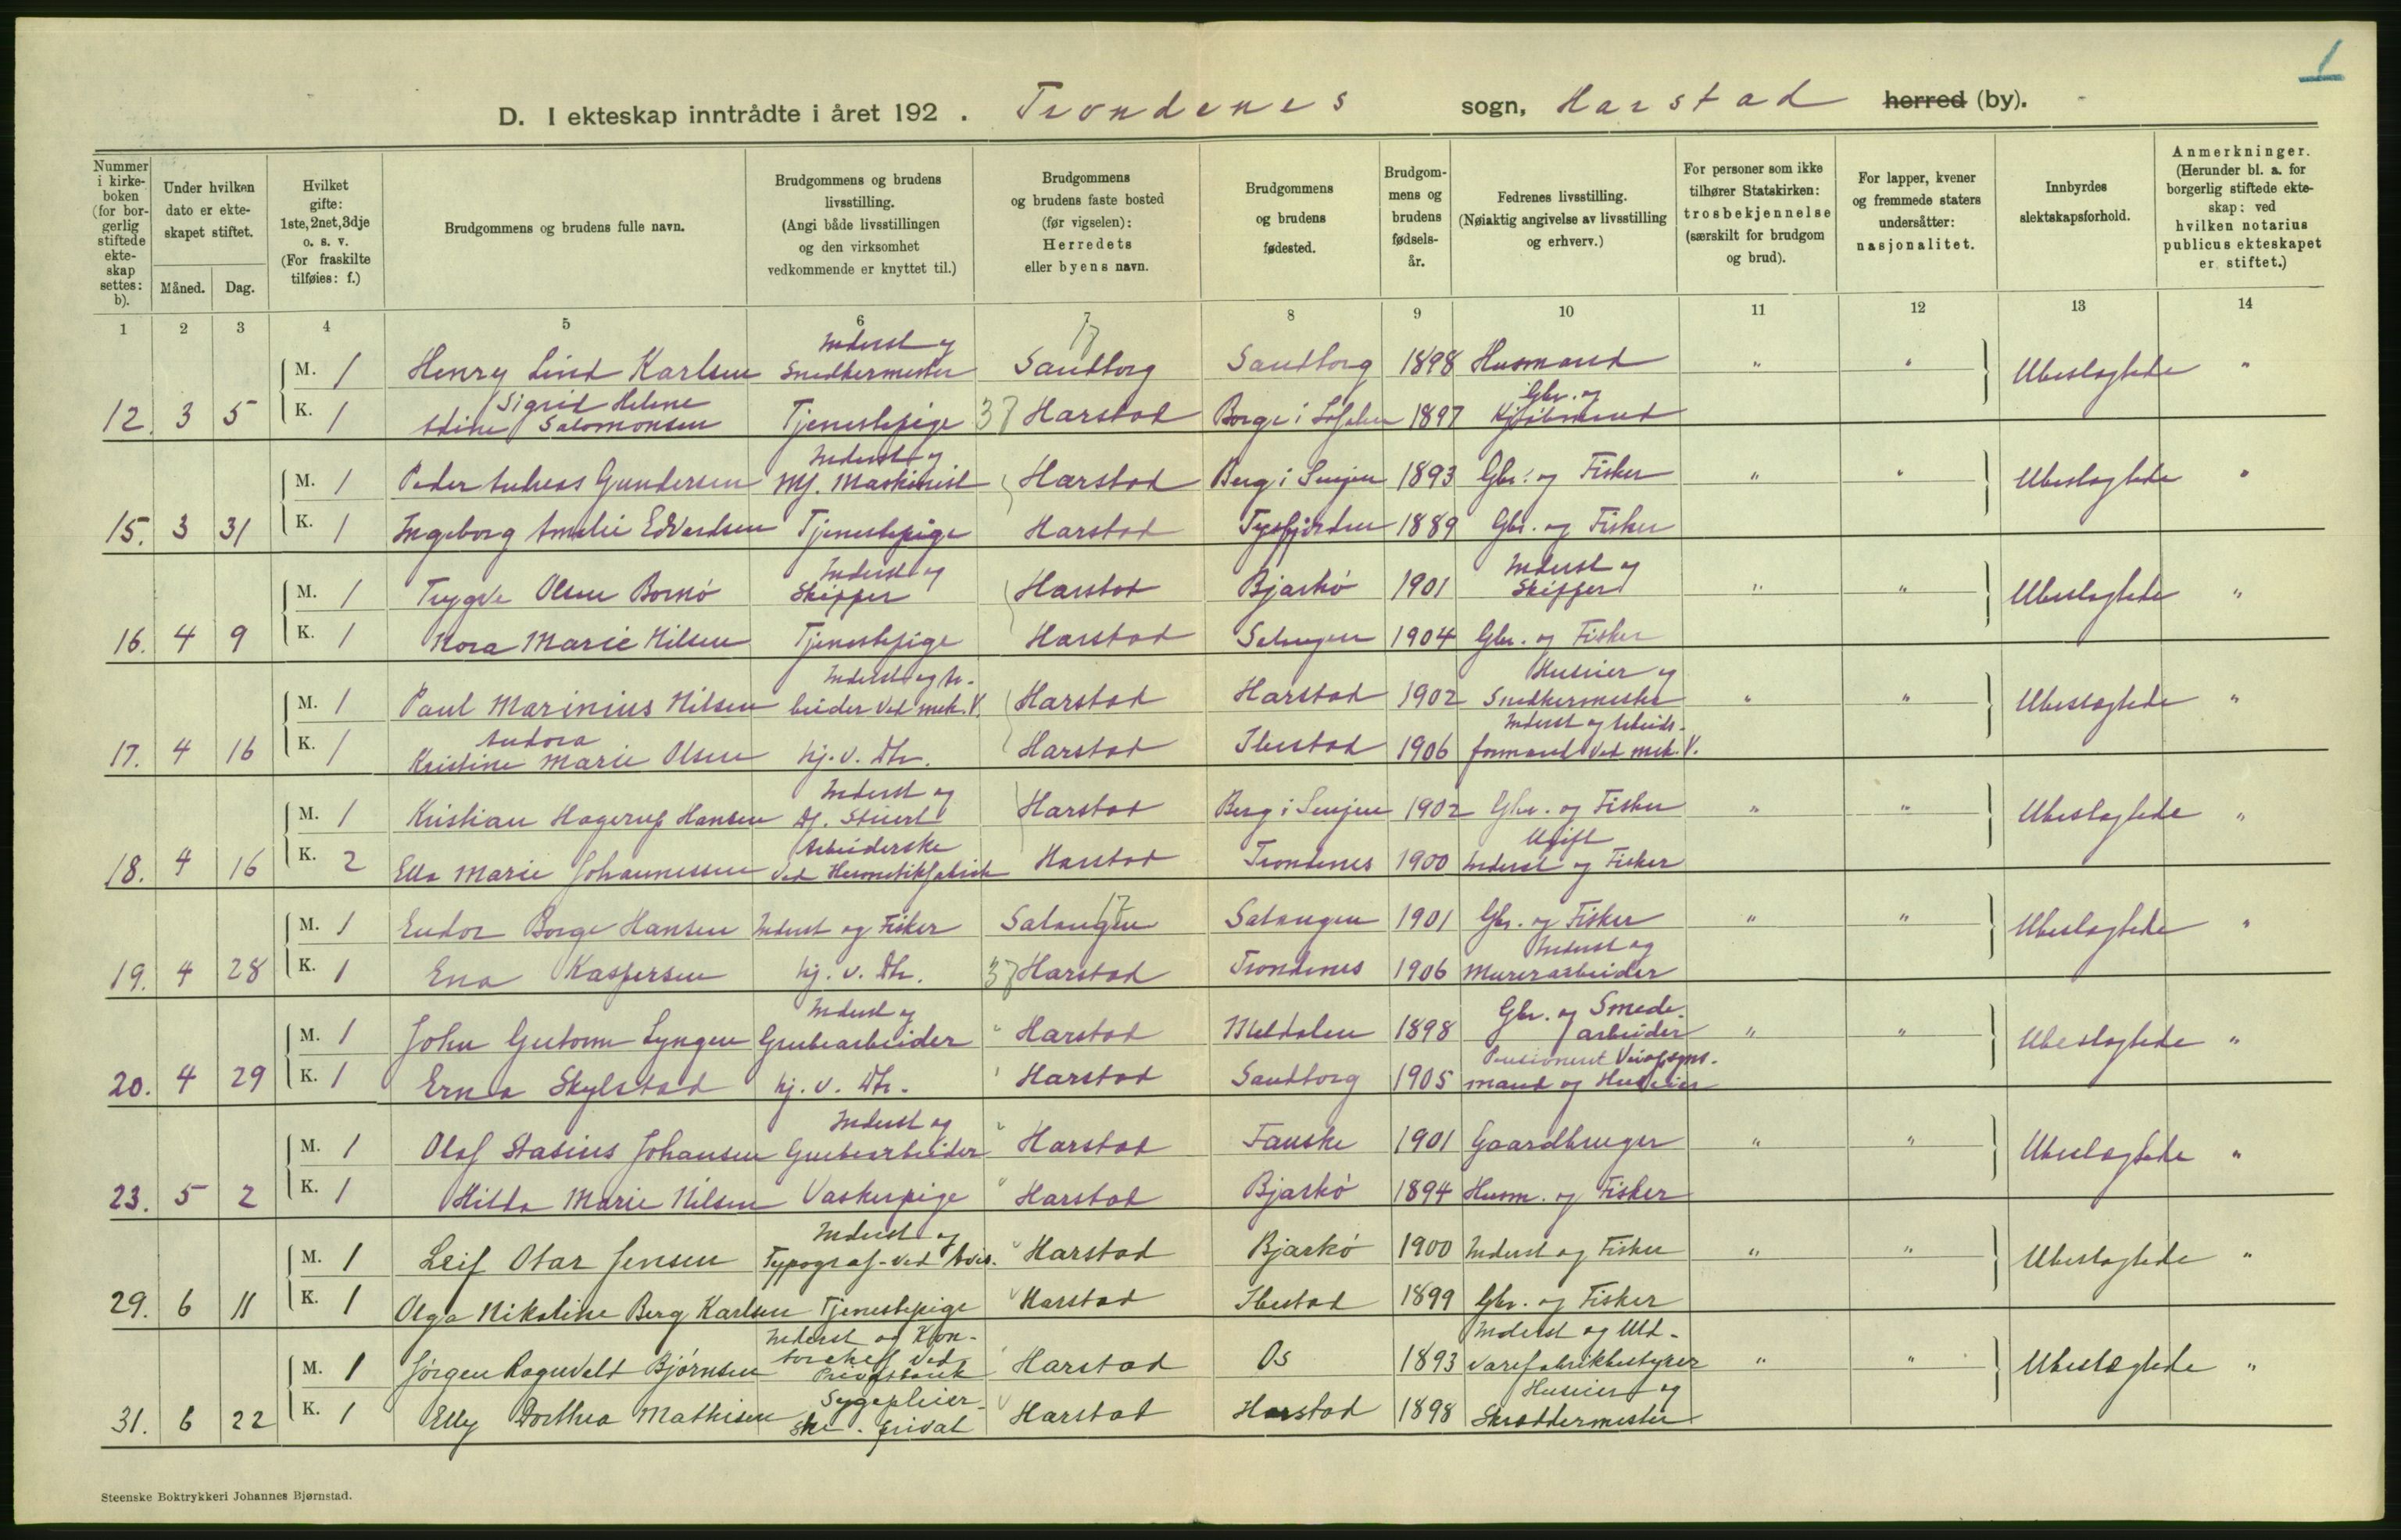 1
D. I ekteskap inntrådte i året 192 . Trondenes sogn, Harstad herred (by).
Nummer i kirkeboken (for borgerlig stiftede ekteskap settes: b).
Under hvilken dato er ekteskapet stiftet.
Måned. Dag.
Hvilket gifte: 1ste, 2net, 3dje o. s. v. (For fraskilte tilføies: f.)
Brudgommens og brudens fulle navn.
Brudgommens og brudens livsstilling. (Angi både livsstillingen og den virksomhet vedkommende er knyttet til.)
Brudgommens og brudens faste bosted (før vigselen): Herredets eller byens navn.
Brudgommens og brudens fødested.
Brudgommens og brudens fødselsår.
Fedrenes livsstilling. (Nøiaktig angivelse av livsstilling og erhverv.)
For personer som ikke tilhører Statskirken: trosbekjennelse (særskilt for brudgom og brud).
For lapper, kvener og fremmede staters undersåtter: nasjonalitet.
Innbyrdes slektskapsforhold.
Anmerkninger. (Herunder bl. a. for borgerlig stiftede ekteskap: ved hvilken notarius publicus ekteskapet er stiftet.)
1 2 3 4 5 6 7 8 9 10 11 12 13 14
Inderst og 17
M. 1 Henry Lind Karlsen Snedkermester Sandtorg Sandtorg 1898 Husmand " " Ubeslegtede "
Sigrid Helene Gbr. og
12. 3 5 K. 1 Adine Salomonsen Tjenestepige 37 Harstad Borge i Lofoten 1897 Kjøbmand
Inderst og
M. 1 Peder Andreas Gundersen Mj. Maskinist Harstad Berg i Senjen 1893 Gbr. og Fisker " " Ubeslegtede "
15. 3 31 K. 1 Ingeborg Amalie Edvardsen Tjenestepige Harstad Tysfjorden 1889 Gbr. og Fisker
Inderst og Inderst og
M. 1 Trygve Olsen Bornø Skipper Harstad Bjarkö 1901 Skipper " " Ubeslegtede "
16. 4 9 K. 1 Nora Marie Nilsen Tjenestepige Harstad Salangen 1904 Gbr. og Fisker
Inderst og Ar- Huseier og
M. 1 Paul Marinius Nilsen beider ved mek. V. Harstad Harstad 1902 Snedkermester " " Ubeslegtede "
Andora Inderst og Arbeids-
17. 4 16 K. 1 Kristine Marie Olsen hj. v. Dtr. Harstad Ibestad 1906 formand ved mek. V.
Inderst og
M. 1 Kristian Hagerup Hansen Dj. Stuert Harstad Berg i Senjen 1902 Gbr. og Fisker " " Ubeslegtede "
Arbeiderske Ugift
18. 4 16 K. 2 Ella Marie Johannessen ved Hermetikfabrik Harstad Trondenes 1900 Inderst og Fisker
17
M. 1 Endor Borge Hansen Inderst og Fisker Salangen Salangen 1901 Gbr. og Fisker " " Ubeslegtede "
Inderst og
19. 4 28 K. 1 Ena Kaspersen hj. v. Dtr. 37 Harstad Trondenes 1906 Murerarbeider
Inderst og Gbr. og Smede-
M. 1 John Guttorm Lyngen Grubearbeider " Harstad Meldalen 1898 arbeider " " Ubeslegtede "
Pensioneret Veiopsyns-
20. 4 29 K. 1 Erna Skylstad hj. v. Dtr. Harstad Sandtorg 1905 mand og Huseier
Inderst og
M. 1 Olaf Stasius Johansen Grubearbeider " Harstad Fauske 1901 Gaardbruger " " Ubeslegtede "
23. 5 2 K. 1 Hilda Marie Nilsen Vaskepige " Harstad Bjarkö 1894 Husm. og Fisker
Inderst og
M. 1 Leif Otar Jensen Typograf ved Avis. Harstad Bjarkö 1900 Inderst og Fisker " " Ubeslegtede "
29. 6 11 K. 1 Olga Nikoline Berg Karlsen Tjenestepige Harstad Ibestad 1899 Gbr. og Fisker
Inderst og Kon- Inderst og Uld-
M. 1 Jørgen Ragnvald Bjørnsen torchef ved Privatbank Harstad Os 1893 varefabrikbestyrer " " Ubeslegtede "
Sygepleier- Huseier og
31. 6 22 K. 1 Elly Dorthea Mathisen ske. privat Harstad Harstad 1898 Skræddermester
Steenske Boktrykkeri Johannes Bjørnstad.